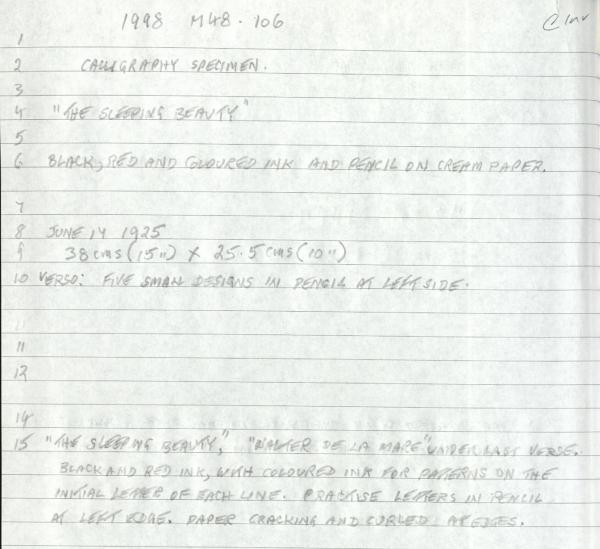 1998 M48.106
C Inv
1
2 CALLIGRAPHY SPECIMEN.
3
4 "THE SLEEPING BEAUTY"
5
6 BLACK, RED AND COLOURED INK AND PENCIL ON CREAM PAPER.
7
8 JUNE 14 1925
9 38 cms (15") X 25.5 cms (10")
10 VERSO: FIVE SMALL DESIGNS IN PENCIL AT LEFT SIDE.
11
12
14
15 "THE SLEEPING BEAUTY", "WALTER DE LA MARE" UNDER LAST VERSE.
BLACK AND RED INK, WITH COLOURED INK FOR PATTERNS ON THE
INITIAL LETTER OF EACH LINE. PRACTISE LETTERS IN PENCIL
AT LEFT EDGE. PAPER CRACKING AND CURLED AT EDGES.